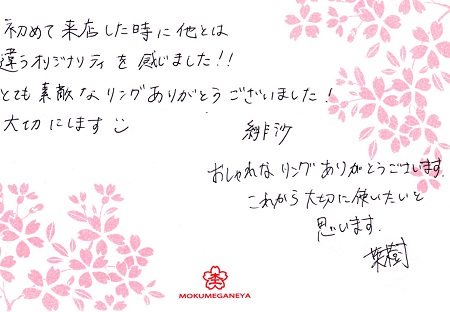 初めて来店した時に他とは
違うオリジナリティを感じました!!
とても素敵なリングありがとうございました!
大切にします
緋沙
おしゃれなリングありがとうございます。
これから大切に使いたいと
思います。
葉樹
MOKUMEGANEYA